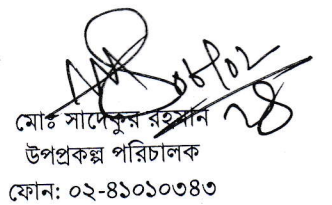 ০৮/০২/২৪
মোঃ সাদেকুর রহমান
উপপ্রকল্প পরিচালক
ফোন: ০২-৪১০১০৩৪৩